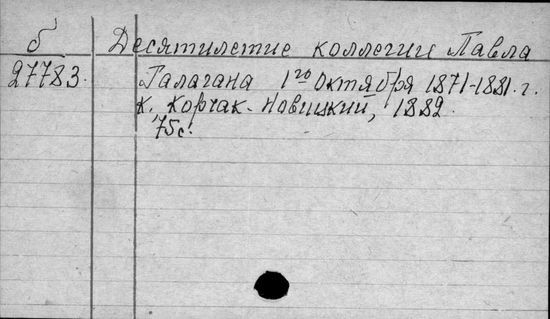 б Десятилетие коллегии Павла
27783. Галагана 1го Октября 1871-1881.г.
К. Корчак-Новицкий, 1882.
75с.